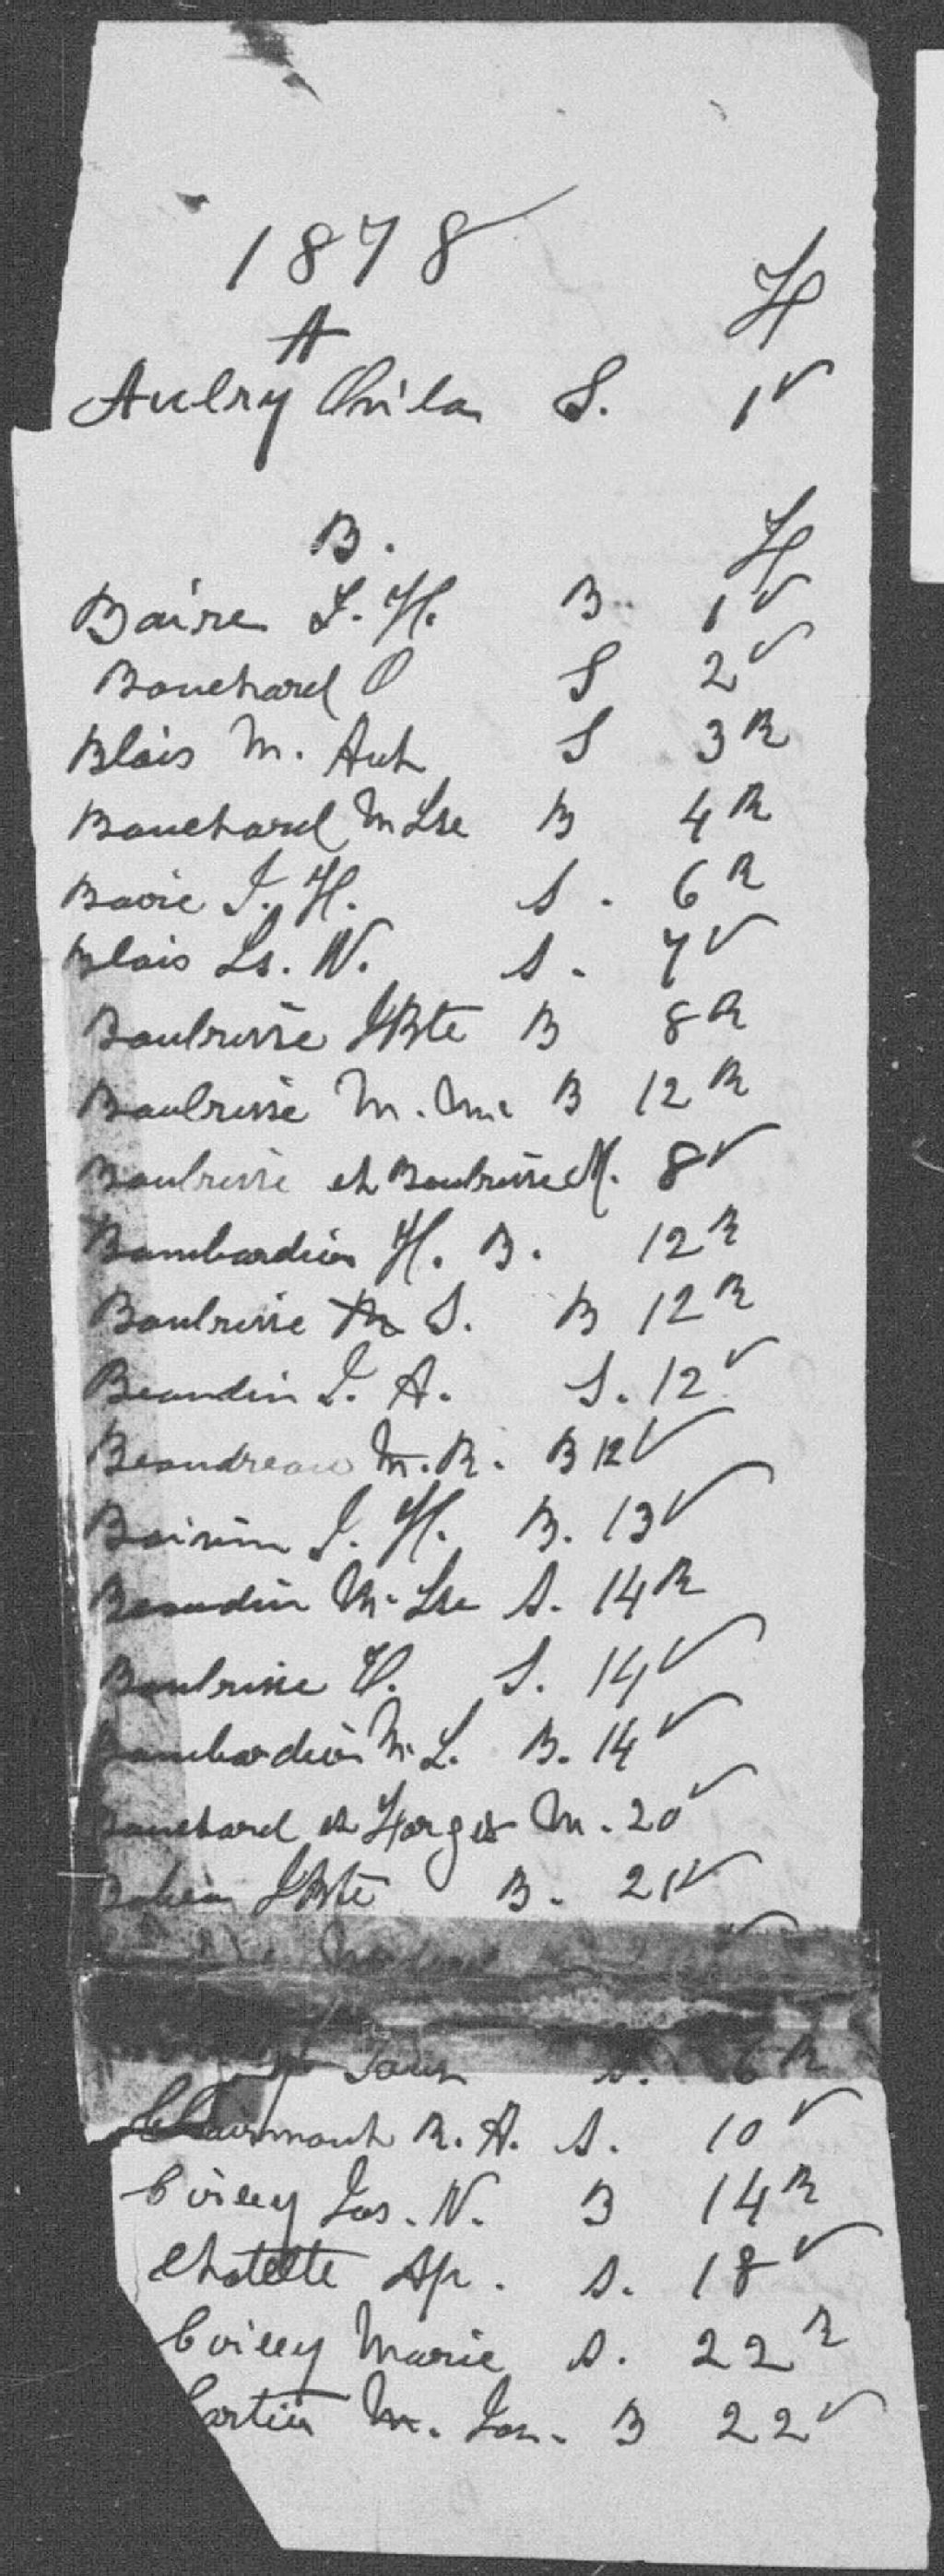 1878
A
Aubry Ovila S. 1 V
B.
Baire J. H. B. 1 V
Bouchard O S 2 V
Blais M. Ant S 3 R
Bouchard M Lse B 4 R
Bavie J. H. S. 6 R
Blais Ls. N. S. 7 V
Boulrisse JBte B 8 R
Boulrisse M. B 12 R
Boulrisse et Boulrisse M. 8 V
Bombardier H. B. 12 R
Boulrisse S. B 12 R
Beaudin J. A. S. 12 V
Beaudreau M. R. B 12 V
Boivin J. H. B. 13 V
Beaudin M. Lse S. 14 R
Boulrisse O. S. 14 V
Bombardier M. L. B. 14 V
Bouchard et Forget M. 20 V
JBte B. 21 V
S. 6 R
R. A. S. 10 V
Coiley Jos. N. B 14 R
Chatelle Ap. S. 18 V
Coiley Marie S. 22 R
artier M. Jos. B 22 V